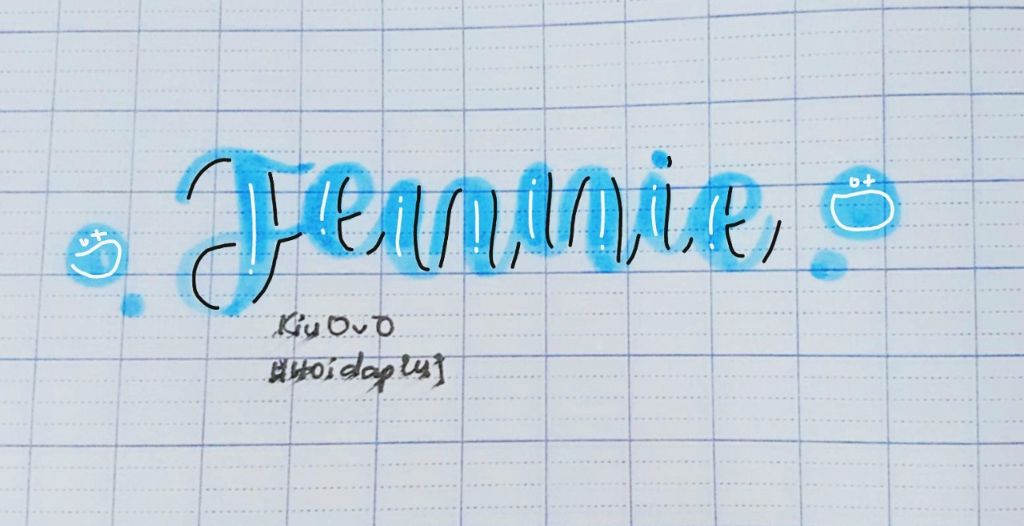 Jennie
Kiu OvO
#Hoidap247